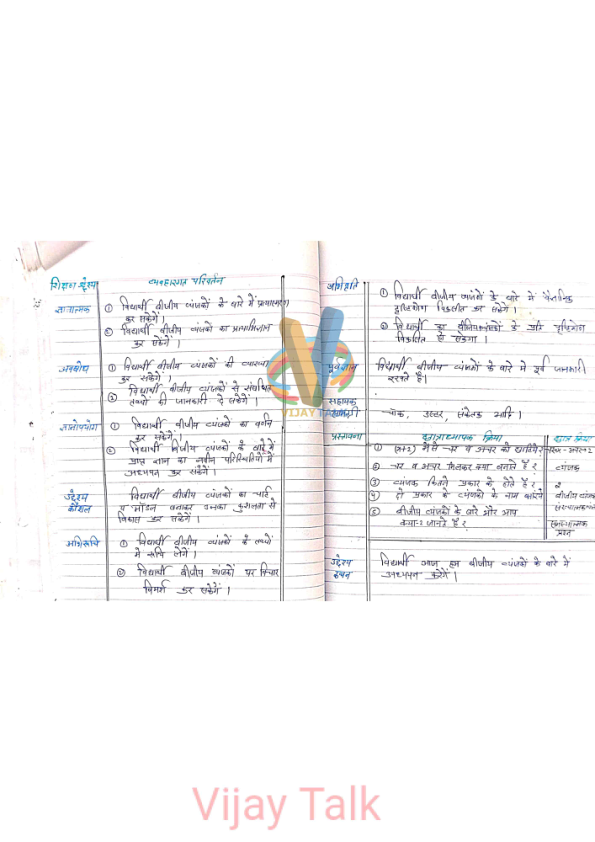 शिक्षण उद्देश्य
व्यवहारगत परिवर्तन
ज्ञानात्मक
① विद्यार्थी बीजीय व्यंजकों के बारे में प्रत्यास्मरण
कर सकेंगे।
② विद्यार्थी बीजीय व्यंजकों का प्रत्यभिज्ञान
कर सकेंगे।
अवबोध
① विद्यार्थी बीजीय व्यंजकों की व्याख्या
कर सकेंगे।
② विद्यार्थी बीजीय व्यंजकों से संबंधित
तथ्यों की जानकारी दे सकेंगे।
ज्ञानोपयोग
① विद्यार्थी बीजीय व्यंजकों का वर्णन
कर सकेंगे।
② विद्यार्थी बीजीय व्यंजकों के बारे में
प्राप्त ज्ञान का नवीन परिस्थितियों में
अध्ययन कर सकेंगे।
उद्देश्य
कौशल
विद्यार्थी बीजीय व्यंजकों का चार्ट
व मॉडल बनाकर उनका कुशलता से
विकास कर सकेंगे।
अभिरूचि
① विद्यार्थी बीजीय व्यंजकों के तथ्यों
में रूचि लेंगे।
② विद्यार्थी बीजीय व्यंजकों पर विचार
विमर्श कर सकेंगे।
अभिवृत्ति
① विद्यार्थी बीजीय व्यंजकों के बारे में वैज्ञानिक
दृष्टिकोण विकसित कर सकेंगे।
② विद्यार्थी का बीजीय व्यंजकों के प्रति दृष्टिकोण
विकसित हो सकेगा।
पूर्वज्ञान
विद्यार्थी बीजीय व्यंजकों के बारे में पूर्व जानकारी
रखते हैं।
सहायक
सामग्री
चॉक, डस्टर, संकेतक आदि।
प्रस्तावना
छात्राध्यापक क्रिया
छात्र क्रिया
① (x+2) में से चर व अचर को छांटिये?
② चर व अचर मिलकर क्या बनाते हैं?
व्यंजक
③ व्यंजक कितने प्रकार के होते हैं?
2
④ दो प्रकार के व्यंजकों के नाम बताओ
बीजीय व्यंजक
⑤ बीजीय व्यंजकों के बारे और आप
क्या-2 जानते हैं?
समस्यात्मक
प्रश्न
उद्देश्य
कथन
विद्यार्थी आज हम बीजीय व्यंजकों के बारे में
अध्ययन करेंगे।
VIJAY TALK
Vijay Talk